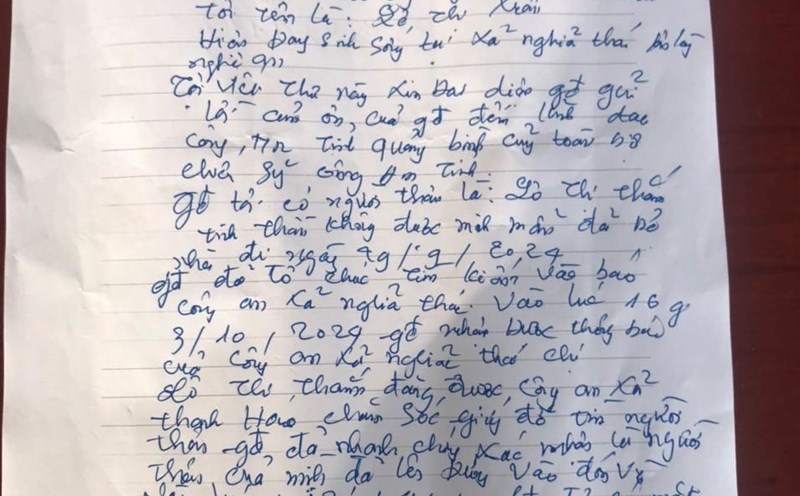 Tôi tên là: Lô Thị Xuân
Hiện Đang Sinh Sống tại Xã nghĩa thái
nghệ an
Tôi viết thư này Xin Đại diện gđ gửi
lời cảm ơn, của gđ đến lãnh đạo
công, an Tỉnh quảng bình cùng toàn bộ
chiến Sỹ công an Tỉnh.
gđ tôi có người thân là: Lô Thị thắm
tinh thần không được minh mẫn đã bỏ
nhà đi ngày /9/2024
gđ đã tổ chức tìm kiếm vào báo
công an xã nghĩa thái. Vào lúc 16g
3/10/2024 gđ nhận được thông báo
của công an xã nghĩa thái chị
Lô Thị Thắm đang được công an xã
chăm Sóc, giúp đỡ tìm người
thân gđ đã nhanh chóng xác nhận là người
thân của mình đã lên đường vào đón về